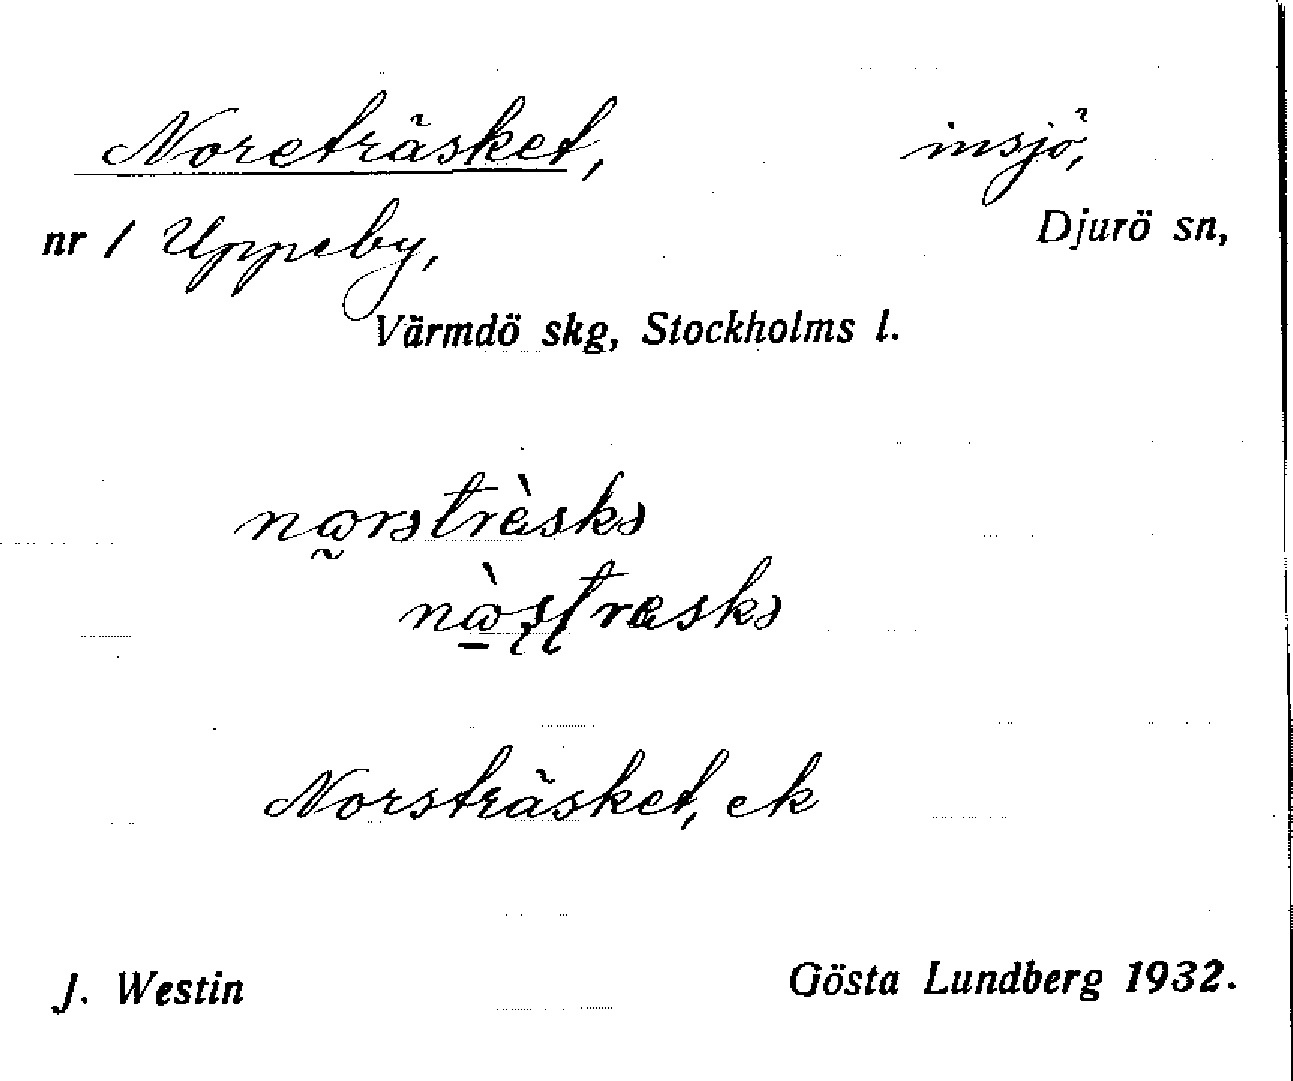 Noreträsket, insjö,
nr 1 Uppeby, Djurö sn,
Värmdö skg, Stockholms l.
Norsträsket, ek
J. Westin Gösta Lundberg 1932.